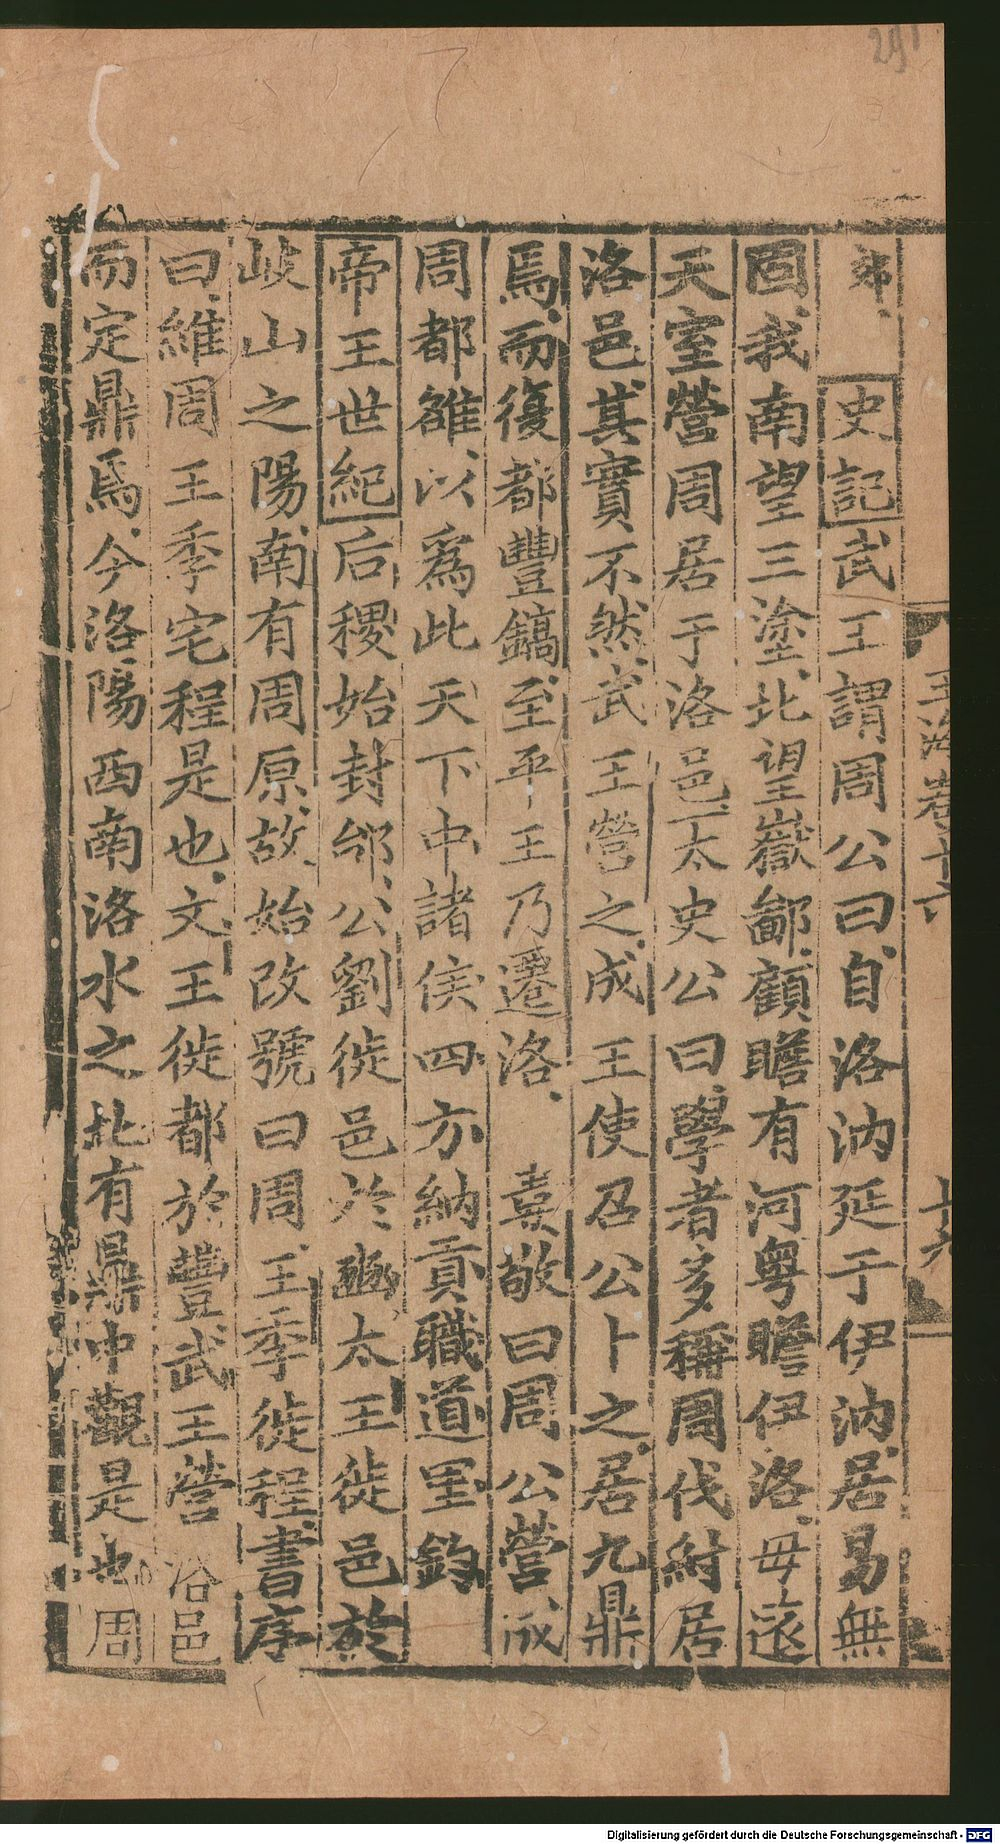 291
弟 史記武王謂周公曰自洛汭延于伊汭居易無
固我南望三塗北望嶽鄙顧瞻有河粤瞻伊洛毋遠
天室營周居于洛邑太史公曰學者多稱周伐紂居
洛邑其實不然武王營之成王使召公卜之居九鼎
焉而復都豐鎬至平王乃遷洛 婁敬曰周公營成
周都雒以爲此天下中諸侯四方納貢職道里鈞
帝王世紀后稷始封邰公劉徙邑於豳太王徙邑於
岐山之陽南有周原故始改號曰周王季徙程書序
曰維周王季宅程是也文王徙都於豐武王營洛邑
而定鼎焉今洛陽西南洛水之北有鼎中觀是也周
玉海卷十六
十六
Digitalisierung gefördert durch die Deutsche Forschungsgemeinschaft - DFG